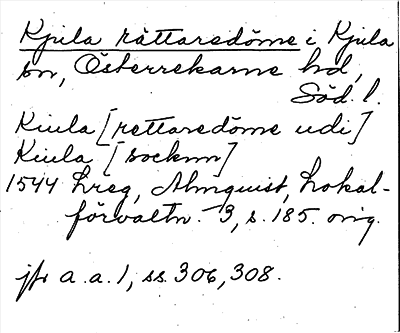 Kjula rättaredöme i Kjula
sn, Österrekarne hd,
Söd. l.
Kiula [rettaredöme udi]
Kiula [socknn]
1544 Lreg, Almquist, Lokal-
förvaltn. 3, s. 185. orig.
jfr a.a. 1, ss. 306, 308.